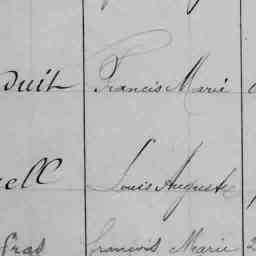 duit Francis Marie
ell Louis Auguste
Gras François Marie 2